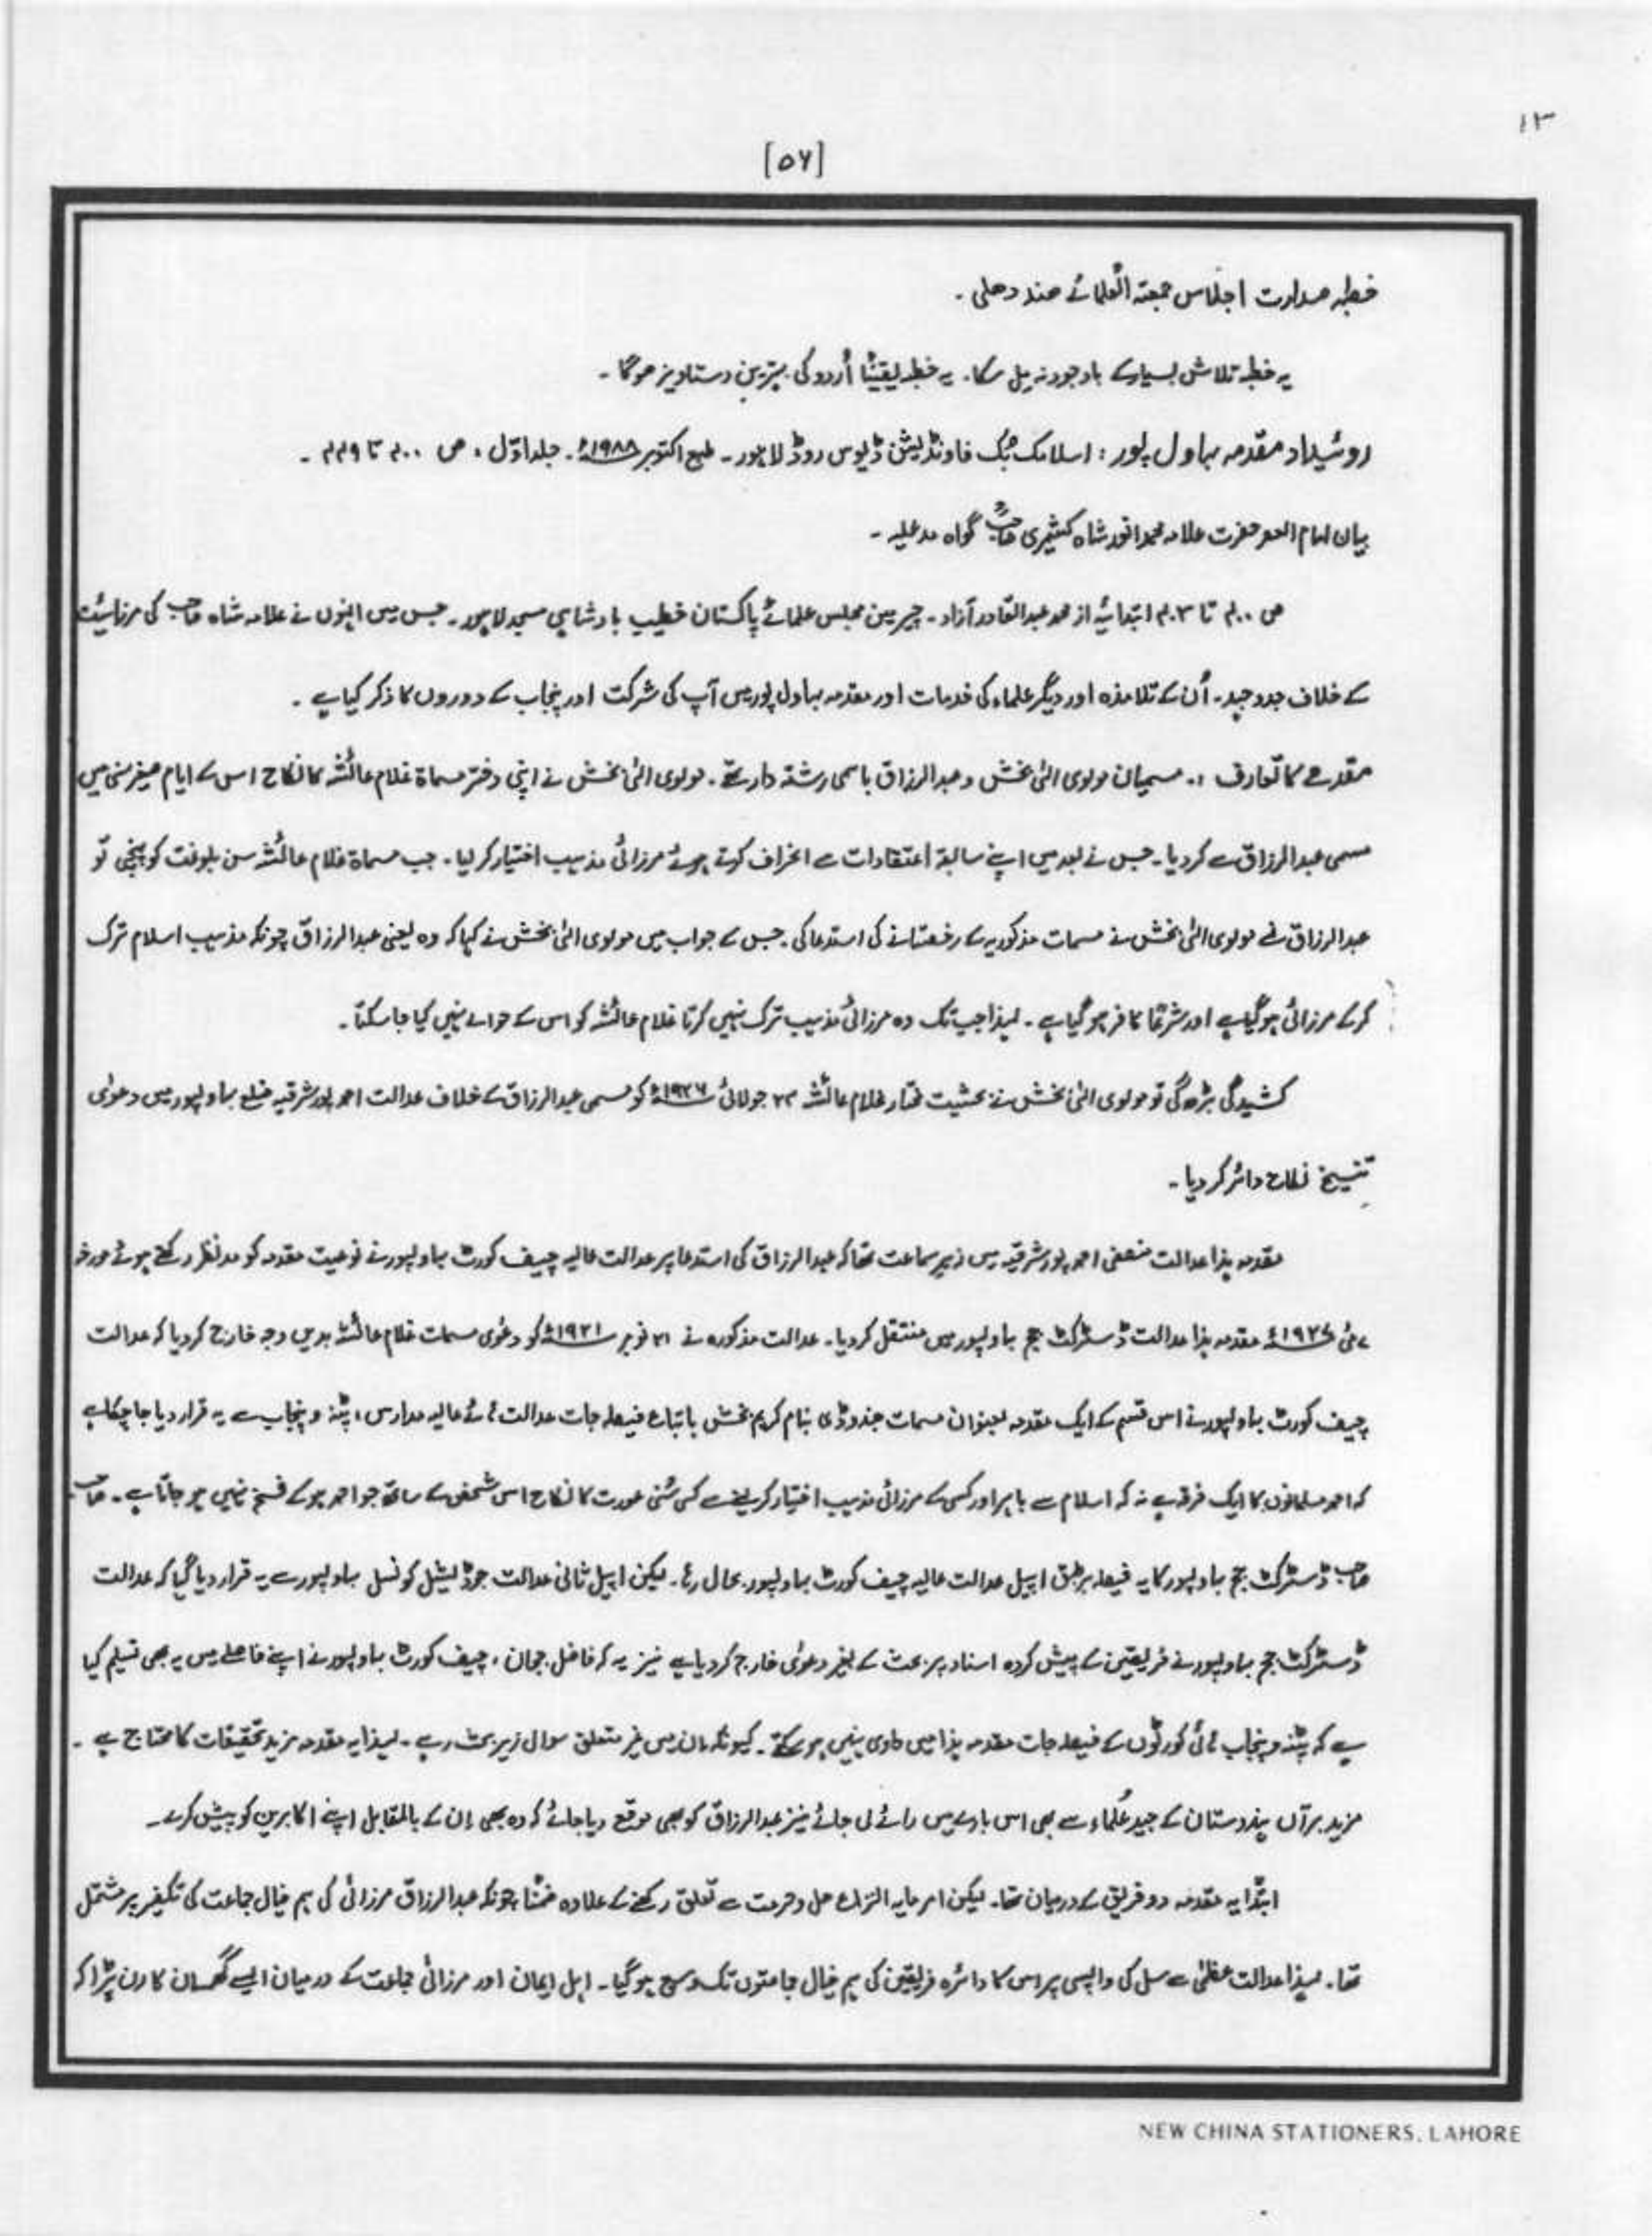 ۱۳
[۵۶]
خطبہ صدارت اجلاس جمعیتہ العلمائے ھند دھلی ۔
یہ خطبہ تلاش بسیار کے باوجود نہ مل سکا۔ یہ خطبہ یقیناً اُردو کی بہترین دستاویز ھوگا ۔
روئیداد مقدمہ بہاول پور : اسلامک بُک فاونڈیشن ڈیوس روڈ لاہور ۔ طبع اکتوبر ۱۹۸۸ء ۔ جلد اوّل ، ص ۴۰۰ تا ۴۴۹ ۔
بیان امام العصر حضرت علامہ محمد انور شاہ کشمیری صاحبؒ گواہ مدعلیہ ۔
ص ۴۰۰ تا ۴۰۳ ابتدائیہ از محمد عبدالقادر آزاد ۔ چیرمین مجلس علمائے پاکستان خطیب بادشاہی مسجد لاہور ۔ جس میں انہوں نے علامہ شاہ صاحب کی مرزائیت
کے خلاف جدوجہد ۔ اُن کے تلامذہ اور دیگر علماء کی خدمات اور مقدمہ بہاول پور میں آپ کی شرکت اور پنجاب کے دوروں کا ذکر کیا ہے ۔
مقدمے کا تعارف :۔ مسمیان مولوی الٰہی بخش و عبدالرزاق باہمی رشتہ دار تھے ۔ مولوی الٰہی بخش نے اپنی دختر مسماۃ غلام عائشہ کا نکاح اس کے ایام صغیر سنی میں
مسمی عبدالرزاق سے کردیا ۔ جس نے بعد میں اپنے سابقہ اعتقادات سے انحراف کرتے ہوئے مرزائی مذہب اختیار کر لیا ۔ جب مسماۃ غلام عائشہ سن بلوغت کو پہنچی تو
عبدالرزاق نے مولوی الٰہی بخش سے مسمات مذکوریہ کے رخصتانے کی استدعا کی ۔ جس کے جواب میں مولوی الٰہی بخش نے کہا کہ وہ یعنی عبدالرزاق چونکہ مذہب اسلام ترک
کر کے مرزائی ہوگیا ہے اور شرعًا کافر ہو گیا ہے ۔ لہذا جب تک وہ مرزائی مذہب ترک نہیں کرتا غلام عائشہ کو اس کے حوالے نہیں کیا جا سکتا ۔
کشیدگی بڑھ گئی تو مولوی الٰہی بخش نے بحثیت مختار غلام عائشہ ۲۴ جولائی ۱۹۲۶ء کو مسمی عبدالرزاق کے خلاف عدالت احمد پور شرقیہ ضلع بہاولپور میں دعویٰ
تنسیخِ نکاح دائر کردیا ۔
مقدمہ ہذا عدالت منصفی احمد پور شرقیہ میں زیر سماعت تھا کہ عبدالرزاق کی استدعا پر عدالت عالیہ چیف کورٹ بہاولپور نے نوعیت مقدمہ کو مدنظر رکھتے ہوئے مورخہ
۷ مئی ۱۹۲۷ء مقدمہ ہذا عدالت ڈسٹرکٹ جج بہاولپور میں منتقل کردیا ۔ عدالت مذکورہ نے ۲۱ نومبر ۱۹۲۱ء کو دعوٰی مسمات غلام عائشہ بدیں وجہ خارج کردیا کہ عدالت
چیف کورٹ بہاولپور نے اس قسم کے ایک مقدمہ بعنوان مسمات جندوڈی بنام کریم بخش باتباع فیصلہ جات عدالت ہائے عالیہ مدارس ، پٹنہ و پنجاب سے یہ قرار دیا جا چکا ہے
کہ احمد مسلمانوں کا ایک فرقہ ہے نہ کہ اسلام سے باہر اور کسی کے مرزائی مذہب اختیار کر لینے سے کسی سُنی عورت کا نکاح اس شخص کے ساتھ جو احمد ہوکے فسخ نہیں ہو جاتا ہے ۔ صاحب
صاحب ڈسٹرکٹ جج بہاولپور کا یہ فیصلہ برطبق اپیل عدالت عالیہ چیف کورٹ بہاولپور بحال رہا ۔ لیکن اپیل ثانی عدالت جوڈیشیل کونسل بہاولپور سے یہ قرار دیا گیا کہ عدالت
ڈسٹرکٹ جج بہاولپور نے فریقین کے پیش کردہ اسناد پر بحث کے بغیر دعوٰی خارج کردیا ہے نیز یہ کہ فاضل ججان ، چیف کورٹ بہاولپور نے اپنے فاصلے میں یہ بھی تسلیم کیا
ہے کہ پٹنہ و پنجاب ہائی کورٹوں کے فیصلہ جات مقدمہ ہذا میں حاوی نہیں ہو سکتے ۔ کیونکہ ان میں غیر متعلق سوال زیر بحث رہے ۔ لہذا یہ مقدمہ مزید تحقیقات کا محتاج ہے ۔
مزید برآں ہندوستان کے جید عُلماء سے بھی اس بارے میں رائے لی جائے نیز عبدالرزاق کو بھی موقع دیا جائے کہ وہ بھی اِن کے بالمقابل اپنے اکابرین کو پیش کرے ۔
ابتدًا یہ مقدمہ دو فریق کے درمیان تھا ۔ لیکن امر مابہ النزاع حل و حرمت سے تعلق رکھنے کے علاوہ ضمنًا چونکہ عبدالرزاق مرزائی کی ہم خیال جماعت کی تکفیر پر مشتمل
تھا ۔ لہذا عدالت عظمٰی سے مسل کی واپسی پر اس کا دائرہ فریقین کی ہم خیال جماعتوں تک وسیع ہو گیا ۔ اہل ایمان اور مرزائی جماعت کے درمیان ایسے گھمسان کا رن پڑا کہ
NEW CHINA STATIONERS, LAHORE